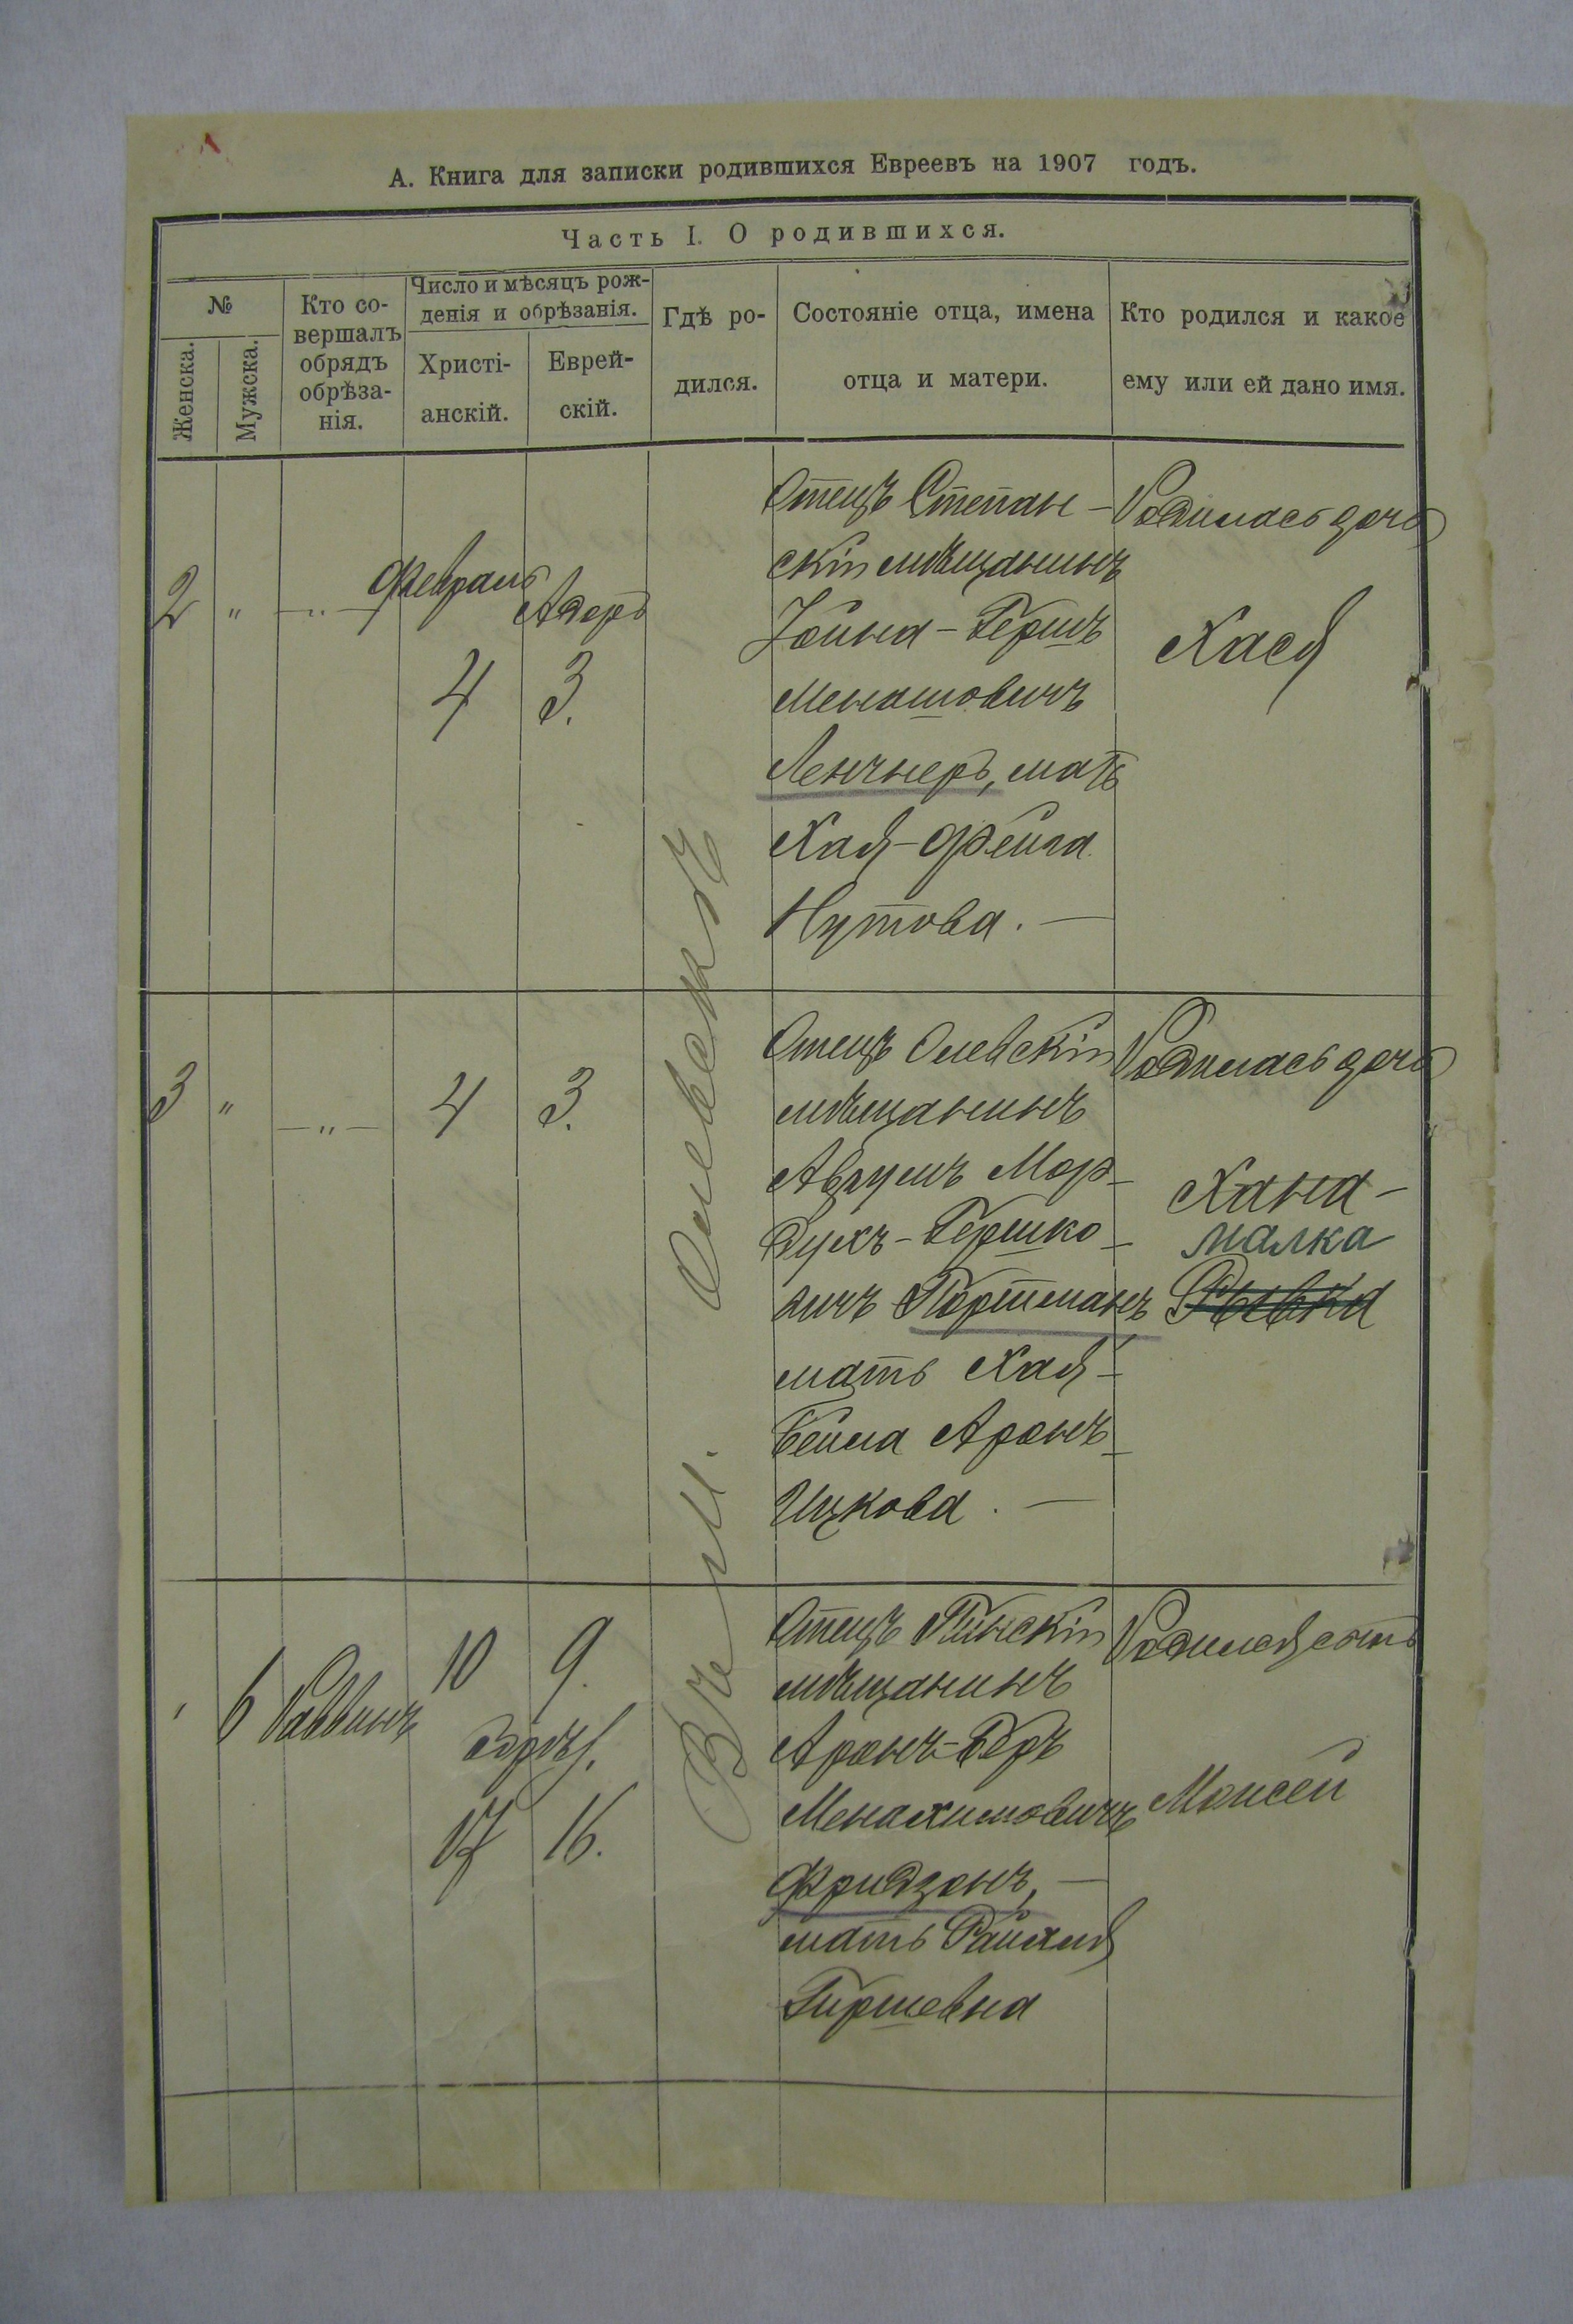 А. Книга для записки родившихся Евреевъ на 1907 годъ.
Часть I. О родившихся.
№
Женска.
Мужска.
Кто со-
вершалъ
обрядъ
обрѣза-
нія.
Число и мѣсяцъ рож-
денія и обрѣзанія.
Христі-
анскій.
Еврей-
скій.
Гдѣ ро-
дился.
Состояніе отца, имена
отца и матери.
Кто родился и какое
ему или ей дано имя.
2 " —"—
Февраль
4
Адоръ
3.
Отецъ Степан-
скій мѣщанинъ
Іойна-Гершъ
Менашовичъ
Ленчнеръ, мать
Хая-Фейга
Нутова. —
Родилась дочь
Хася
Въ м. Олевскѣ
3 " —"— 4 3.
Отецъ Олевскій
мѣщанинъ
Аврумъ Мор-
духъ-Гершко-
вичъ Портманъ
мать Хая-
Бейла Аронъ-
Ицкова. —
Родилась дочь
Хана-
малка
Ривка
" 6 Раввинъ
10 9.
обрѣз.
17 16.
Отецъ Пинскій
мѣщанинъ
Аронъ-Беръ
Менахимовичъ
Фридзонъ, —
мать Райхля
Гиршевна
Родился сынъ
Моисей